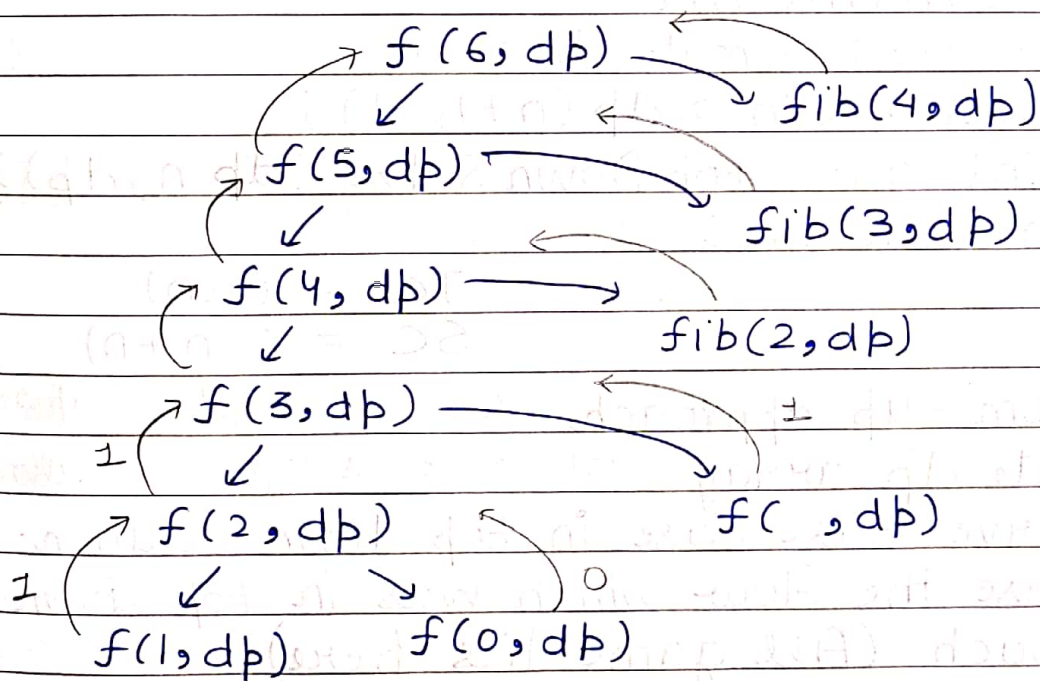 f(6, dp)
fib(4, dp)
f(5, dp)
fib(3, dp)
f(4, dp)
fib(2, dp)
f(3, dp)
1 1
f(2, dp) f( , dp)
1 0
f(1, dp) f(0, dp)